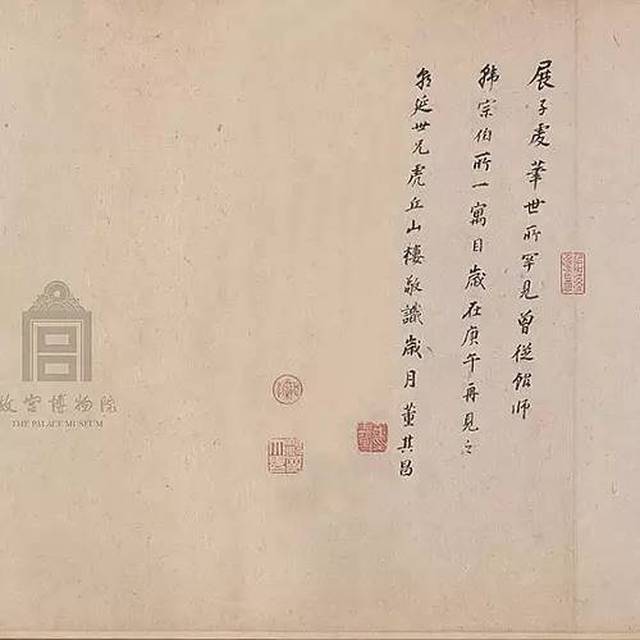 展子虔筆世所罕見曾從館師
韓宗伯所一寓目歲在庚午再見之
朝延世兄虎丘山樓敬識歲月董其昌
故宫博物院
THE PALACE MUSEUM